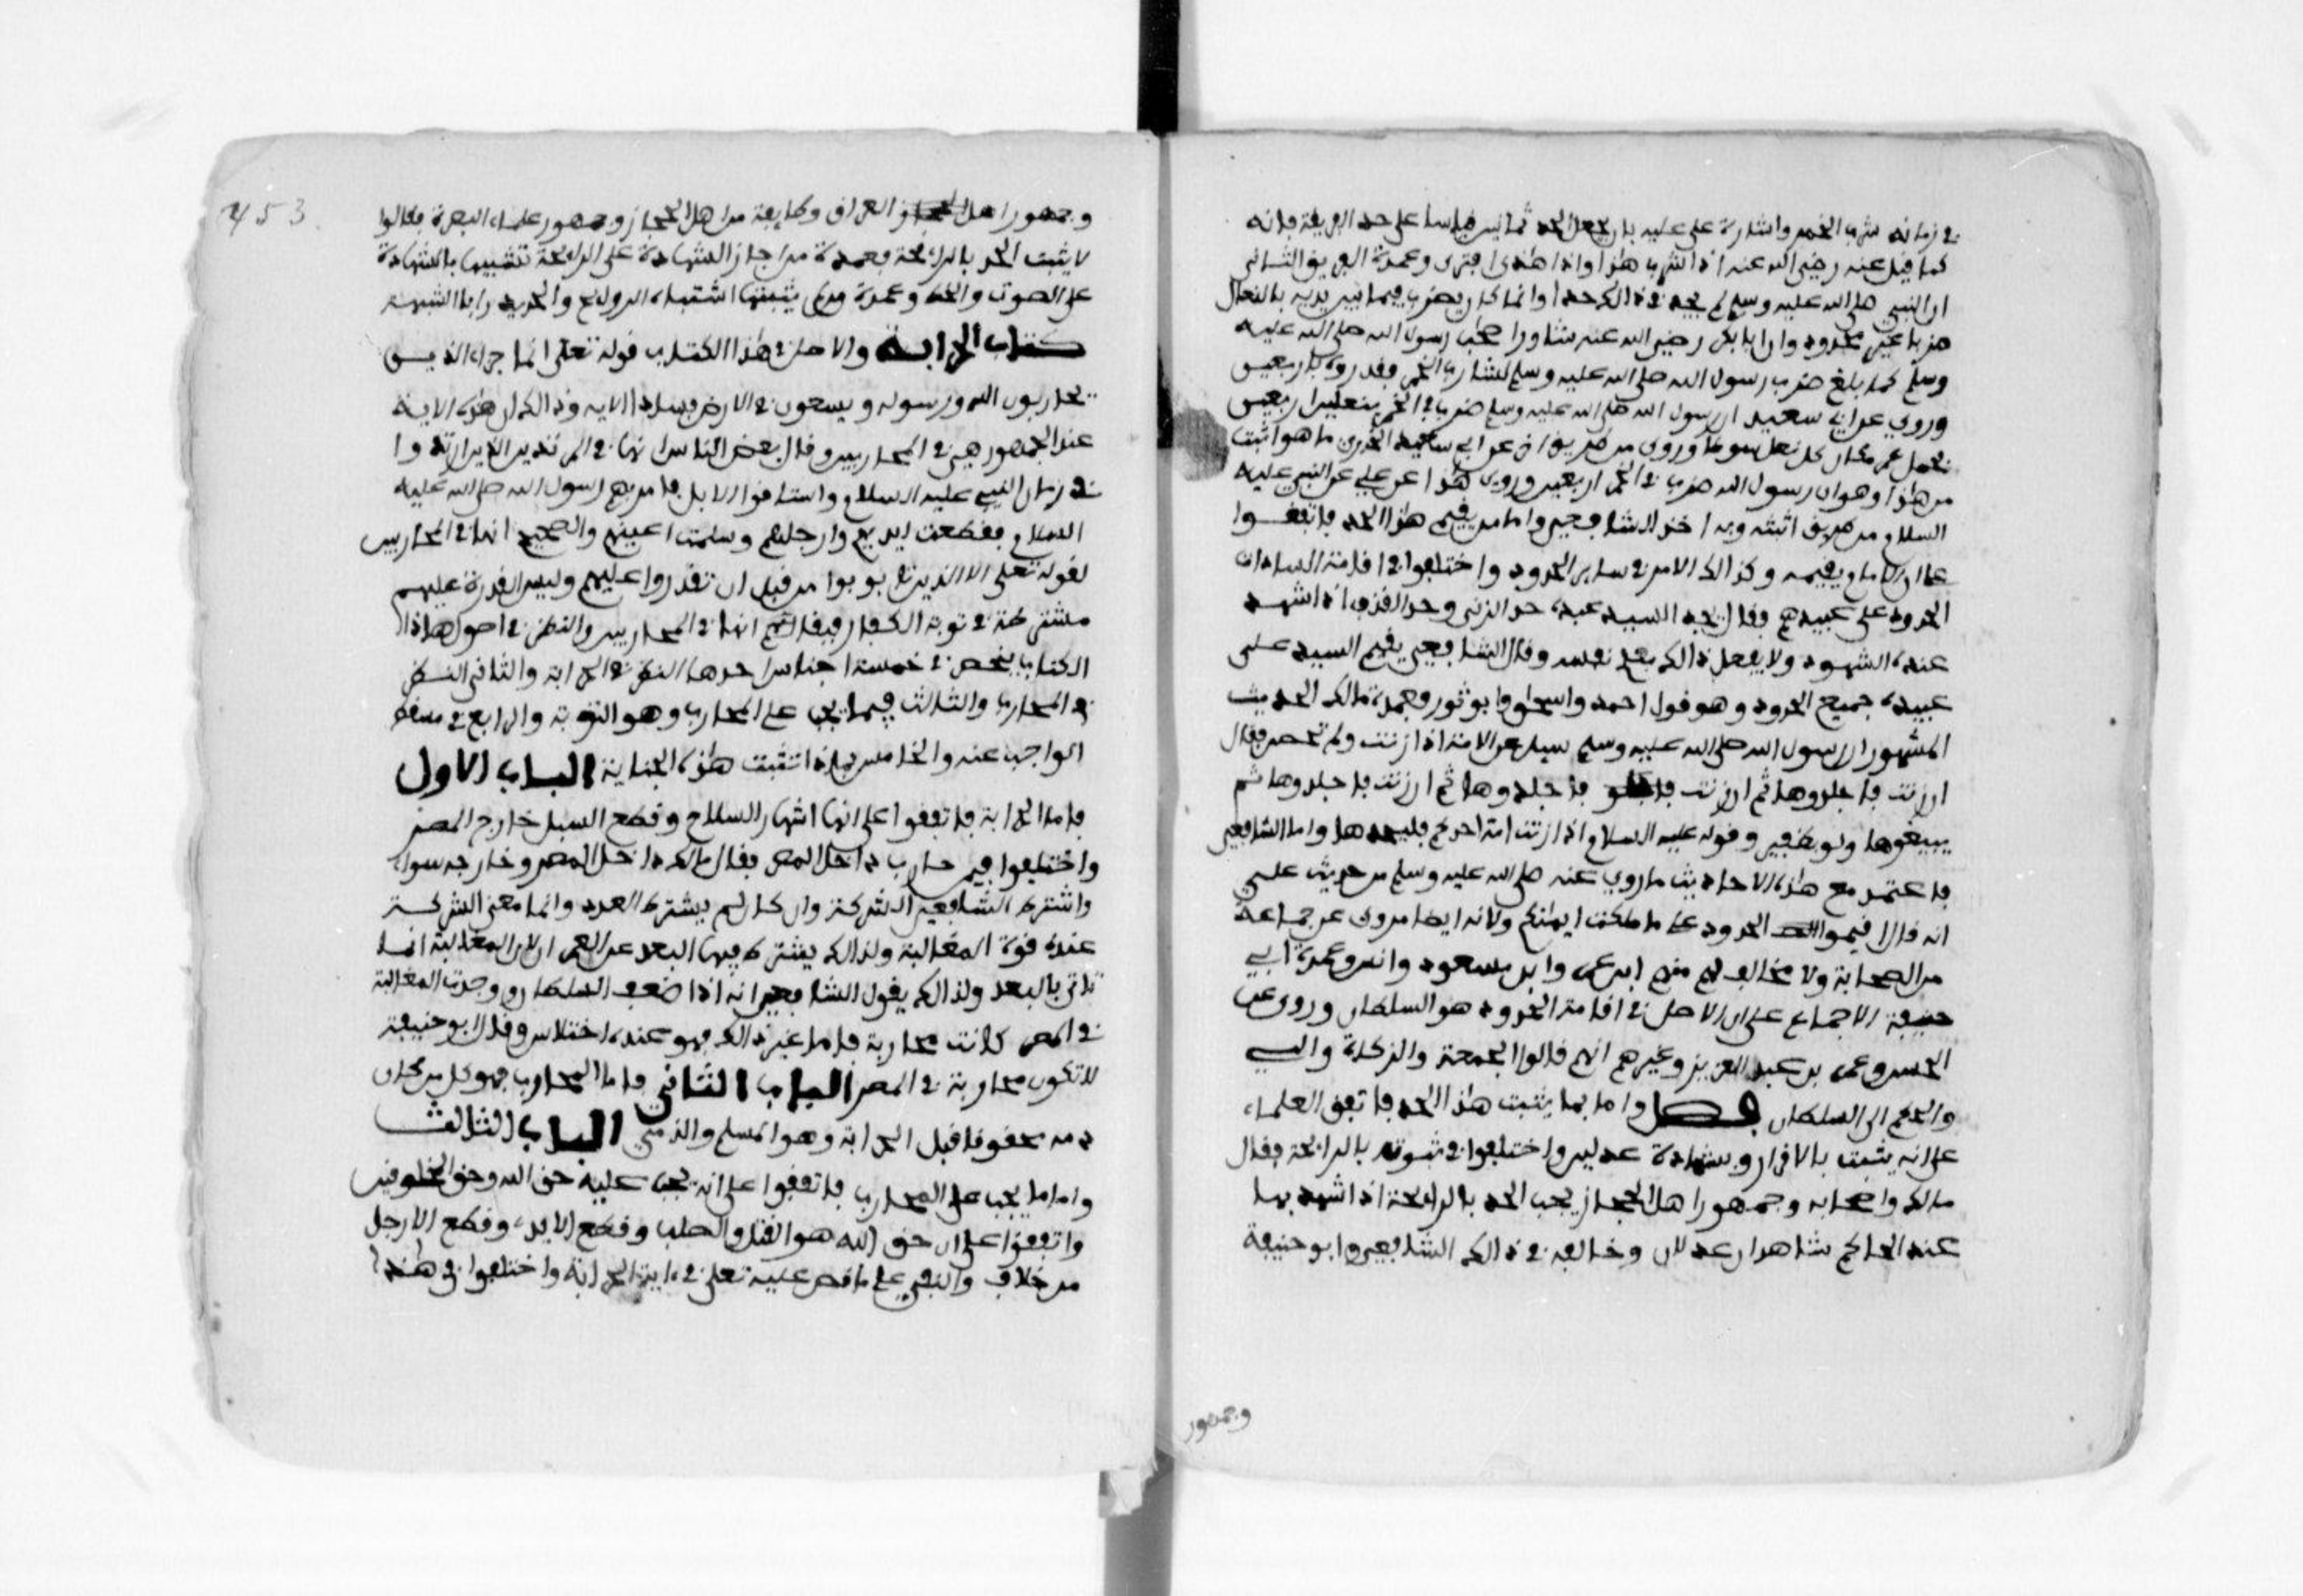 في زمانه شرب الخمر واشارة على عليه بان يجعل الحد ثمانين قياسا على حد الفرية فانه
كما قيل عنه رضي الله عنه اذا شرب هذا واذا هذى افترى وعمدة الفريق الثاني
ان النبي صلى الله عليه وسلم لم يحد في ذالك حدا وانما كان يضرب فيها بين يديه بالنعال
ضربا غير محدود وان ابا بكر رضي الله عنه شاور اصحاب رسول الله صلى الله عليه
وسلم كم بلغ ضرب رسول الله صلى الله عليه وسلم لشارب الخمر فقدروه باربعين
وروي عن ابي سعيد ان رسول الله صلى الله عليه وسلم ضرب في الخمر بنعلين اربعين
فجعل عمر مكان كل نعل سوطا وروى من طريق اخر عن ابي سعيد الخدري ما هو اثبت
من هذا وهو ان رسول الله ضرب في الخمر اربعين وروى هذا عن علي عن النبي عليه
السلام من طريق اثبته وبه اخذ الشافعي واما من يقيم هذا الحد فاتفقوا
على ان الامام يقيمه وكذالك الامر في ساير الحدود واختلفوا في اقامة السادات
الحدود على عبيدهم فقال يحد السيد عبده حد الزنى وحد القذف اذا شهد
عنده الشهود ولا يفعل ذالك بعلم نفسه وقال الشافعي يقيم السيد على
عبيده جميع الحدود وهو قول احمد واسحاق وابو ثور فعمدة مالك الحديث
المشهور ان رسول الله صلى الله عليه وسلم سيل عن الامة اذا زنت ولم تحصن فقال
ان زنت فاجلدوها ثم ان زنت فاجلدوها ثم ان زنت فاجلدوها ثم
يبيعوها ولو بظفير وقوله عليه السلام اذا زنت امة احدكم فليجلدها واما الشافعي
فاعتمد مع هذه الاحاديث ما روي عنه صلى الله عليه وسلم من حديث علي
انه قال اقيموا الحدود على ما ملكت ايمانكم ولانه ايضا مروى عن جماعة
من الصحابة ولا مخالف لهم منهم ابن عمر وابن مسعود وانس وعمدة ابي
حنيفة الاجماع على ان الاصل في اقامة الحدود هو السلطان وروى عن
الحسن وعمر بن عبد العزيز وغيرهم انهم قالوا الجمعة والزكاة والفي
والحكم الى السلطان فصل واما بما يثبت هذا الحد فاتفق العلماء
على انه يثبت بالاقرار وبشهادة عدلين واختلفوا في ثبوته بالرائحة فقال
مالك واصحابه وجمهور اهل الحجاز يجب الحد بالرائحة اذا شهد بها
عند الحاكم شاهدان عدلان وخالفه في ذالك الشافعي وابو حنيفة
وجمهور
453
وجمهور اهل العراق وطايفة من اهل الحجاز وجمهور علماء البصرة فقالوا
لا يثبت الحد بالرائحة فعمدة من اجاز الشهادة على الرائحة تشبيهها بالشهادة
على الصوت والخط وعمدة من لم يثبتها اشتباه الروائح والحد يدرا بالشبهة
كتاب الحرابة والاصل في هذا الكتاب قوله تعلى انما جزاء الذين
يحاربون الله ورسوله ويسعون في الارض فسادا الاية وذالك ان هذه الاية
عند الجمهور هي في المحاربين وقال بعض الناس انها في المرتدين الذين ارتدوا
في زمان النبي عليه السلام واستاقوا الابل فامر بهم رسول الله صلى الله عليه
السلام فقطعت ايديهم وارجلهم وسلمت اعينهم والصحيح انها في المحاربين
لقوله تعلى الا الذين تابوا من قبل ان تقدروا عليهم وليس القدرة عليهم
مشترطة في توبة الكفار فيقال انها في المحاربين والنظر في اصول هاذا
الكتاب ينحصر في خمسة اجناس احدها النظر في الحرابة والثاني النظر
في المحارب والثالث فيما يجب على المحارب وهو التوبة والرابع في مسقط
الواجب عنه والخامس بماذا تثبت هذه الجناية الباب الاول
فاما الحرابة فاتفقوا على انها اشهار السلاح وقطع السبل خارج المصر
واختلفوا فيمن حارب داخل المصر فقال مالك داخل المصر وخارجه سواء
واشترط الشافعي الشركة وان كان لم يشترط العدد وانما معنى الشركة
عنده قوة المغالبة ولذالك يشترط فيها البعد عن العمران لان المغالبة انما
تاتى بالبعد ولذالك يقول الشافعي انه اذا ضعف السلطان ووجدت المغالبة
في المصر كانت محاربة فاما غير ذالك فهو عنده اختلاس وقال ابو حنيفة
لا تكون محاربة في المصر الباب الثاني فاما المحارب فهو كل من كان
دمه محقونا قبل الحرابة وهو المسلم والذمي الباب الثالث
واما ما يجب على المحارب فاتفقوا على انه يجب عليه حق الله وحق المخلوقين
واتفقوا على ان حق الله هو القتل والصلب وقطع الايد وقطع الارجل
من خلاف والنفي على ما نص عليه تعلى في ءاية الحرابة واختلفوا في هذه